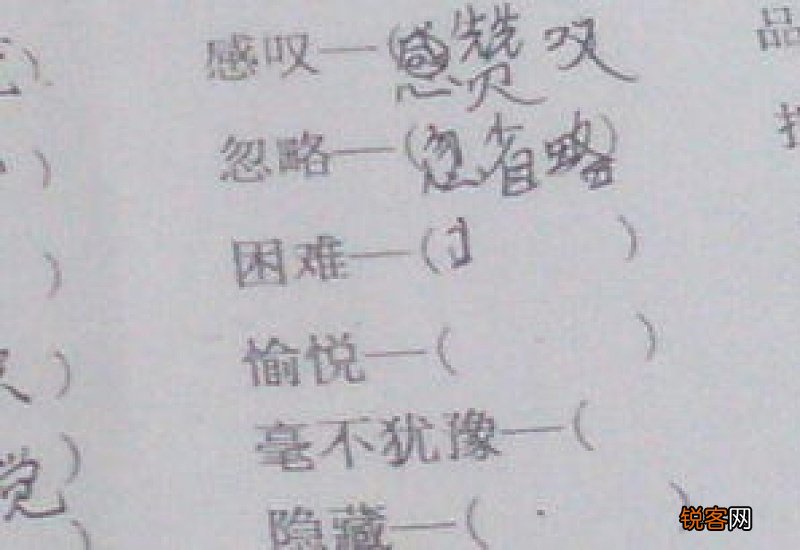 感叹—(赞叹
忽略—(忽省略)
困难—( )
愉悦—( )
毫不犹豫—(
隐藏—( )
觉)
品
锐客网